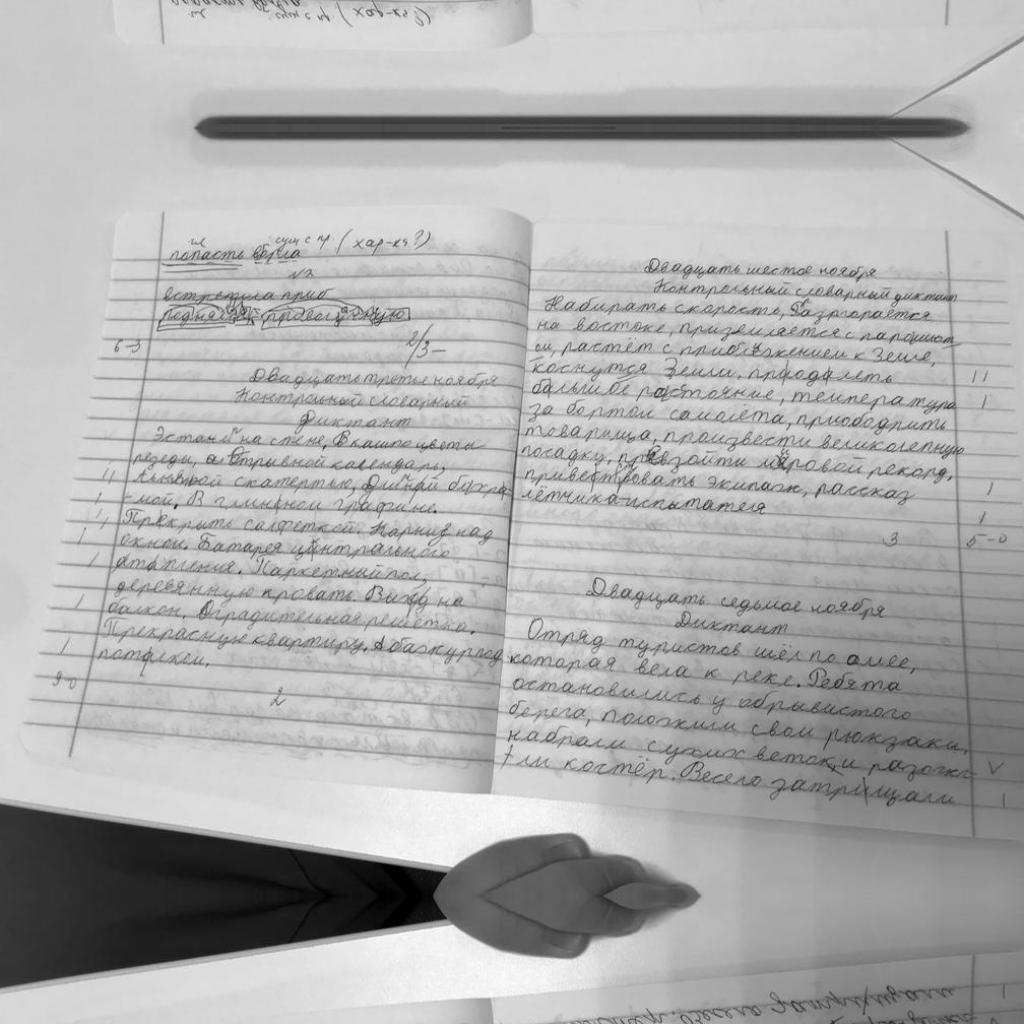 сущ с пр. (хар-ка?)
попасть
встретила приб
6-3
2/3-
Двадцать третье ноября
Контрольный словарный
диктант
Эстамп на стене, В кашпо цветы
резеды, Отрывной календарь,
скатертью,
мой. В глиняной графине.
Прекрыть салфеткой. Карниз над
окном. Батарея центрального
отопления. Паркетный пол,
деревянную кровать. Выход на
балкон. Оградительная решётка.
Прекрасную квартиру. абажур под
потолком.
9-0
2
Двадцать шестое ноября
Контрольный словарный диктант
Набирать скорость, Разгорается
на востоке, приземляется с парашют
ом, растёт с приближением к Земле,
коснутся Земли, преодолеть
большое расстояние, температура
за бортом самолёта, приободрить
товарища, произвести великолепную
посадку, превзойти мировой рекорд,
приветствовать экипаж, рассказ
лётчика-испытателя
3
5-0
Двадцать седьмое ноября
Диктант
Отряд туристов шёл по аллее,
которая вела к реке. Ребята
остановились у обрывистого
берега, положили свои рюкзаки,
набрали сухих веток, и разожг
ли костёр. Весело затрещали